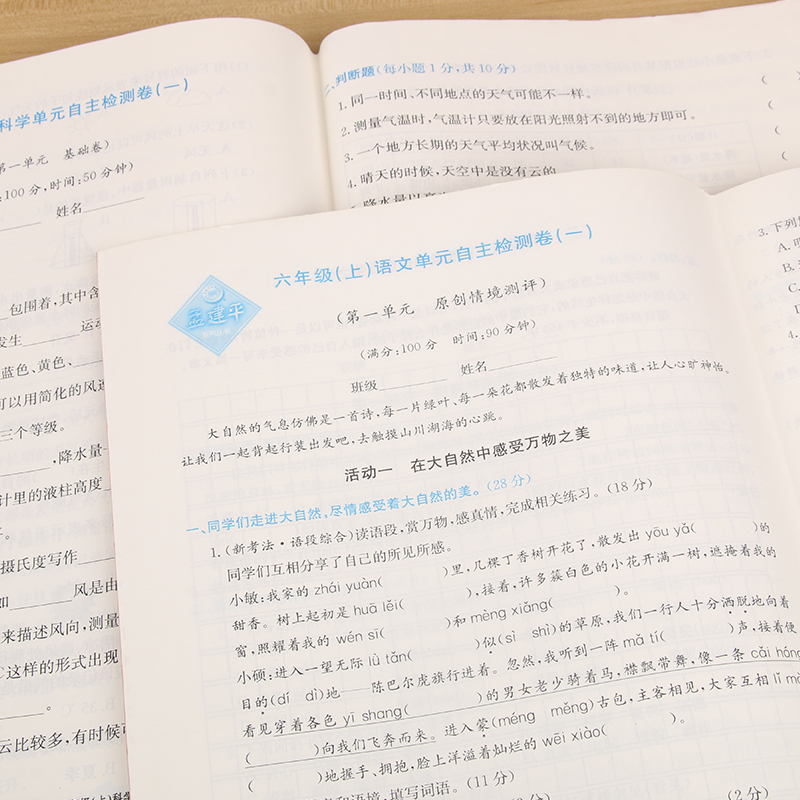 科学单元自主检测卷(一)
第一单元 基础卷)
:100分,时间:50分钟)
姓名
包围着,其中含
发生 运动
蓝色、黄色、
可以用简化的风速
三个等级。
,降水量
计里的液柱高度
摄氏度写作
如 风是由
来描述风向,测量
这样的形式出现
。
云比较多,有时候可
二、判断题(每小题1分,共10分)
1.同一时间、不同地点的天气可能不一样。 (
2.测量气温时,气温计只要放在阳光照射不到的地方即可。 (
3.一个地方长期的天气平均状况叫气候。 (
4.晴天的时候,天空中是没有云的
孟建平
六年级(上)语文单元自主检测卷(一)
(第一单元 原创情境测评)
(满分:100分 时间:90分钟)
班级 姓名
大自然的气息仿佛是一首诗,每一片绿叶、每一朵花都散发着独特的味道,让人心旷神怡。
让我们一起背起行装出发吧,去触摸山川湖海的心跳。
活动一 在大自然中感受万物之美
一、同学们走进大自然,尽情感受着大自然的美。(28分)
1.(新考法·语段综合)读语段,赏万物,感真情,完成相关练习。(18分)
同学们互相分享了自己的所见所感。
小敏:我家的zhái yuàn( )里,几棵丁香树开花了,散发出yōu yǎ( )的
甜香。树上起初是huā lěi( ),接着,许多簇白色的小花开满一树,遮掩着我的
窗,照耀着我的wén sī( )和mèng xiǎng( )。
小硕:进入一望无际lǜ tǎn( )似(sì shì)的草原,我们一行人十分洒脱地向着
目的(dí dì)地——陈巴尔虎旗行进着。忽然,我听到一阵mǎ tí( )声,接着便
看见穿着各色yī shang( )的男女老少骑着马,襟飘带舞,像一条cǎi hóng
( )向我们飞奔而来。进入蒙(méng měng)古包,主客相见,大家互相lǐ mà
( )地握手、拥抱,脸上洋溢着灿烂的wēi xiào( )。
和语境,填写词语。(11分)
(2分)
3.下列
A.
B.
C.
D
4.